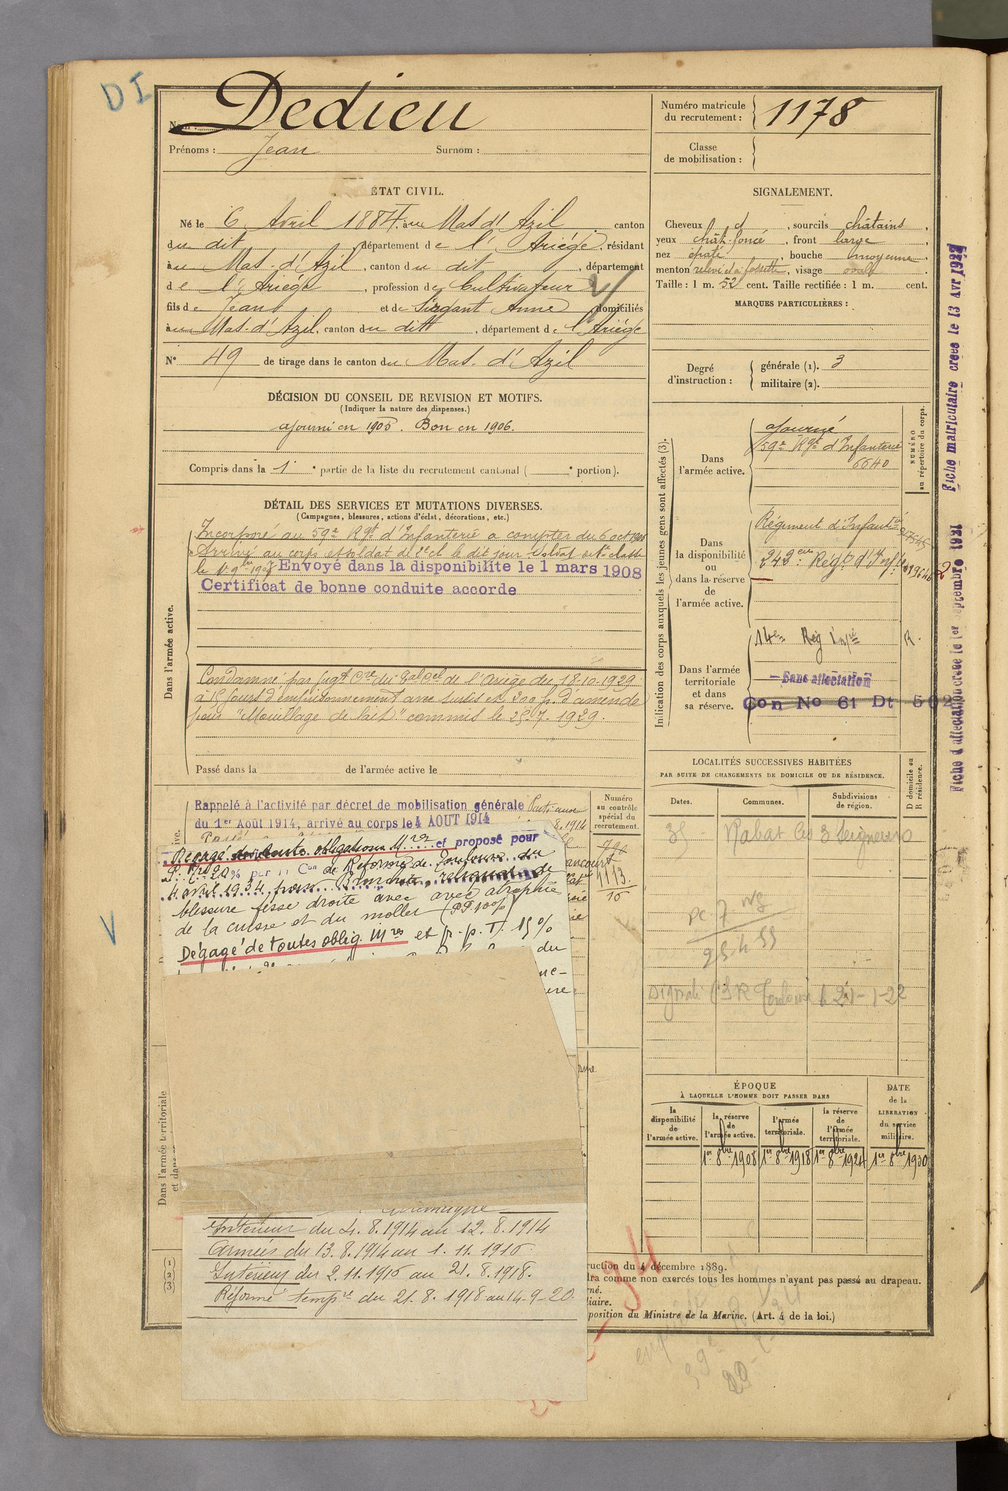 DI
Dedieu
Nom :
Prénoms : Jean Surnom :
Numéro matricule du recrutement : 1178
Classe de mobilisation :
ÉTAT CIVIL.
Né le 6 Avril 1884, au Mas d'Azil canton
du dit, département de l'Ariège, résidant
au Mas d'Azil, canton du dit, département
de l'Ariège, profession de Cultivateur
fils de Jean et de Sirgant Anne, domiciliés
à au Mas d'Azil, canton du dit, département de l'Ariège
N° 49 de tirage dans le canton du Mas d'Azil
SIGNALEMENT.
Cheveux d, sourcils châtains,
yeux chât. foncé, front large,
nez épaté, bouche moyenne,
menton relevé à fossette, visage ovale
Taille : 1 m. 52 cent. Taille rectifiée : 1 m. cent.
MARQUES PARTICULIÈRES :
Degré d'instruction : générale (1). 3
militaire (2).
DÉCISION DU CONSEIL DE REVISION ET MOTIFS.
(Indiquer la nature des dispenses.)
ajourné en 1905. Bon en 1906.
Compris dans la 1e partie de la liste du recrutement cantonal ( e portion).
DÉTAIL DES SERVICES ET MUTATIONS DIVERSES.
(Campagnes, blessures, actions d'éclat, décorations, etc.)
Dans l'armée active.
Incorporé au 59e Rgt d'Infanterie a compter du 6 oct 1906
Arrivé au corps et soldat de 2e cl le dit jour. Soldat de 1e classe
le
Envoyé dans la disponibilite le 1 mars 1908
Certificat de bonne conduite accorde
Condamné par jugt de l'Ariège du 18.10.1929
à 15 jours d'emprisonnement avec sursis et 500 f. d'amende
pour "Mouillage de lait" commis le 25.7.1929.
Passé dans la de l'armée active le
Indication des corps auxquels les jeunes gens sont affectés (3).
NUMÉRO au répertoire du corps.
Dans l'armée active.
ajourné
59e Rgt d'Infanterie
6640
Dans la disponibilité ou dans la réserve de l'armée active.
Régiment d'Infantie
249eme Régt d'Infie
Dans l'armée territoriale et dans sa réserve.
14e Rég Infie R.
Sans affectation
Con No 61 Dt 502
Fiche matriculaire créée le 13 Avr 1922
Fiche d'affectation créée le 1er Septembre 1921
LOCALITÉS SUCCESSIVES HABITÉES
PAR SUITE DE CHANGEMENTS DE DOMICILE OU DE RÉSIDENCE.
Dates. Communes. Subdivisions de région. D domicile ou R résidence.
Rabat les 3 Seigneurs
Rappelé à l'activité par décret de mobilisation générale
du 1er Août 1914, arrivé au corps le 4 AOUT 1914
Numéro au contrôle spécial du recrutement.
1113
et proposé pour
4 avril 1934 pour
blessure fesse droite avec atrophie
de la cuisse et du mollet
Dégagé de toutes oblig. Mres et p. p. T. 15%
du
V
Dans l'armée territoriale
Intérieur du 4.8.1914 au 12.8.1914
Armées du 13.8.1914 au 1.11.1916
Intérieur du 2.11.1916 au 21.8.1918.
Réformé tempre du 21.8.1918 au 14-9-20
ÉPOQUE
À LAQUELLE L'HOMME DOIT PASSER DANS
DATE de la LIBÉRATION du service militaire.
la disponibilité de l'armée active. la réserve de l'armée active. l'armée territoriale. la réserve de l'armée territoriale.
1er 8bre 1908 1er 8bre 1918 1er 8bre 1924 1er 8bre 1930
(1)
(2)
(3)
ruction du 4 décembre 1889.
dra comme non exercés tous les hommes n'ayant pas passé au drapeau.
rné.
liaire.
position du Ministre de la Marine. (Art. 4 de la loi.)
34